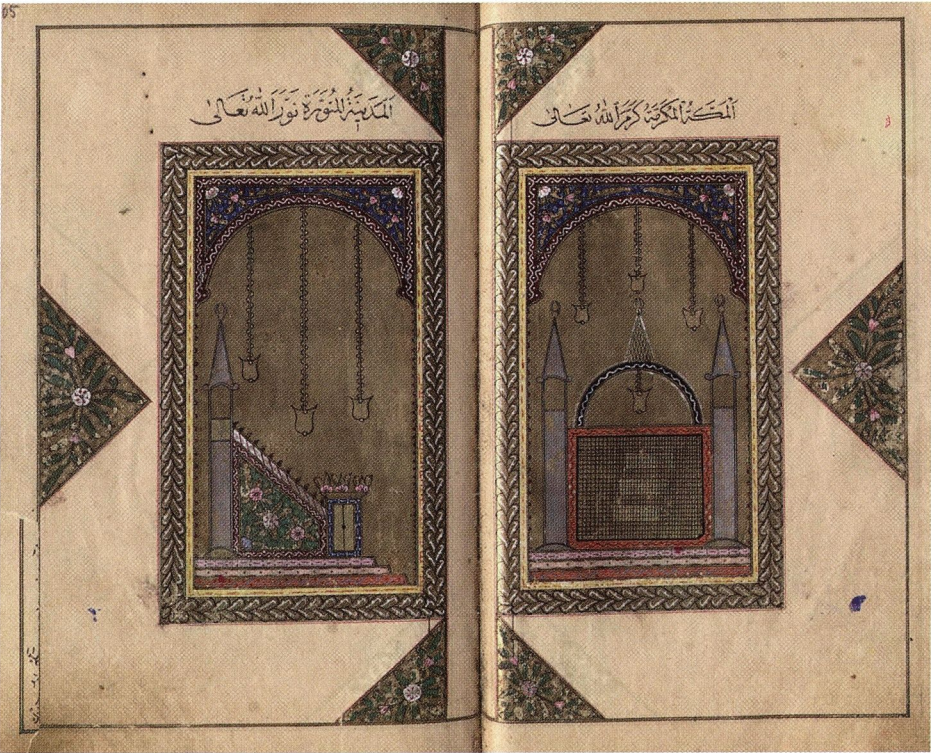 اَلْمَكَّةُ الْمُكَرَّمَةُ كَرَّمَهَا اللهُ تَعَالَى
اَلْمَدِينَةُ الْمُنَوَّرَةُ نَوَّرَهَا اللهُ تَعَالَى